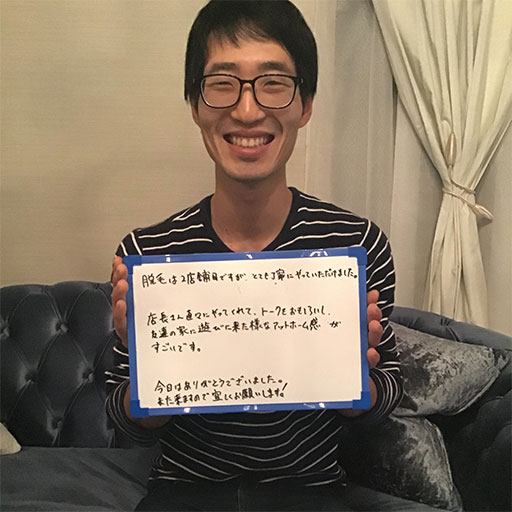 脱毛は2店舗目ですが、とても丁寧にやっていただけました。
店長さん直々にやってくれて、トークもおもしろいし、
友達の家に遊びに来た様なアットホーム感が
すごいです。
今日はありがとうございました。
また来ますので宜しくお願いします!